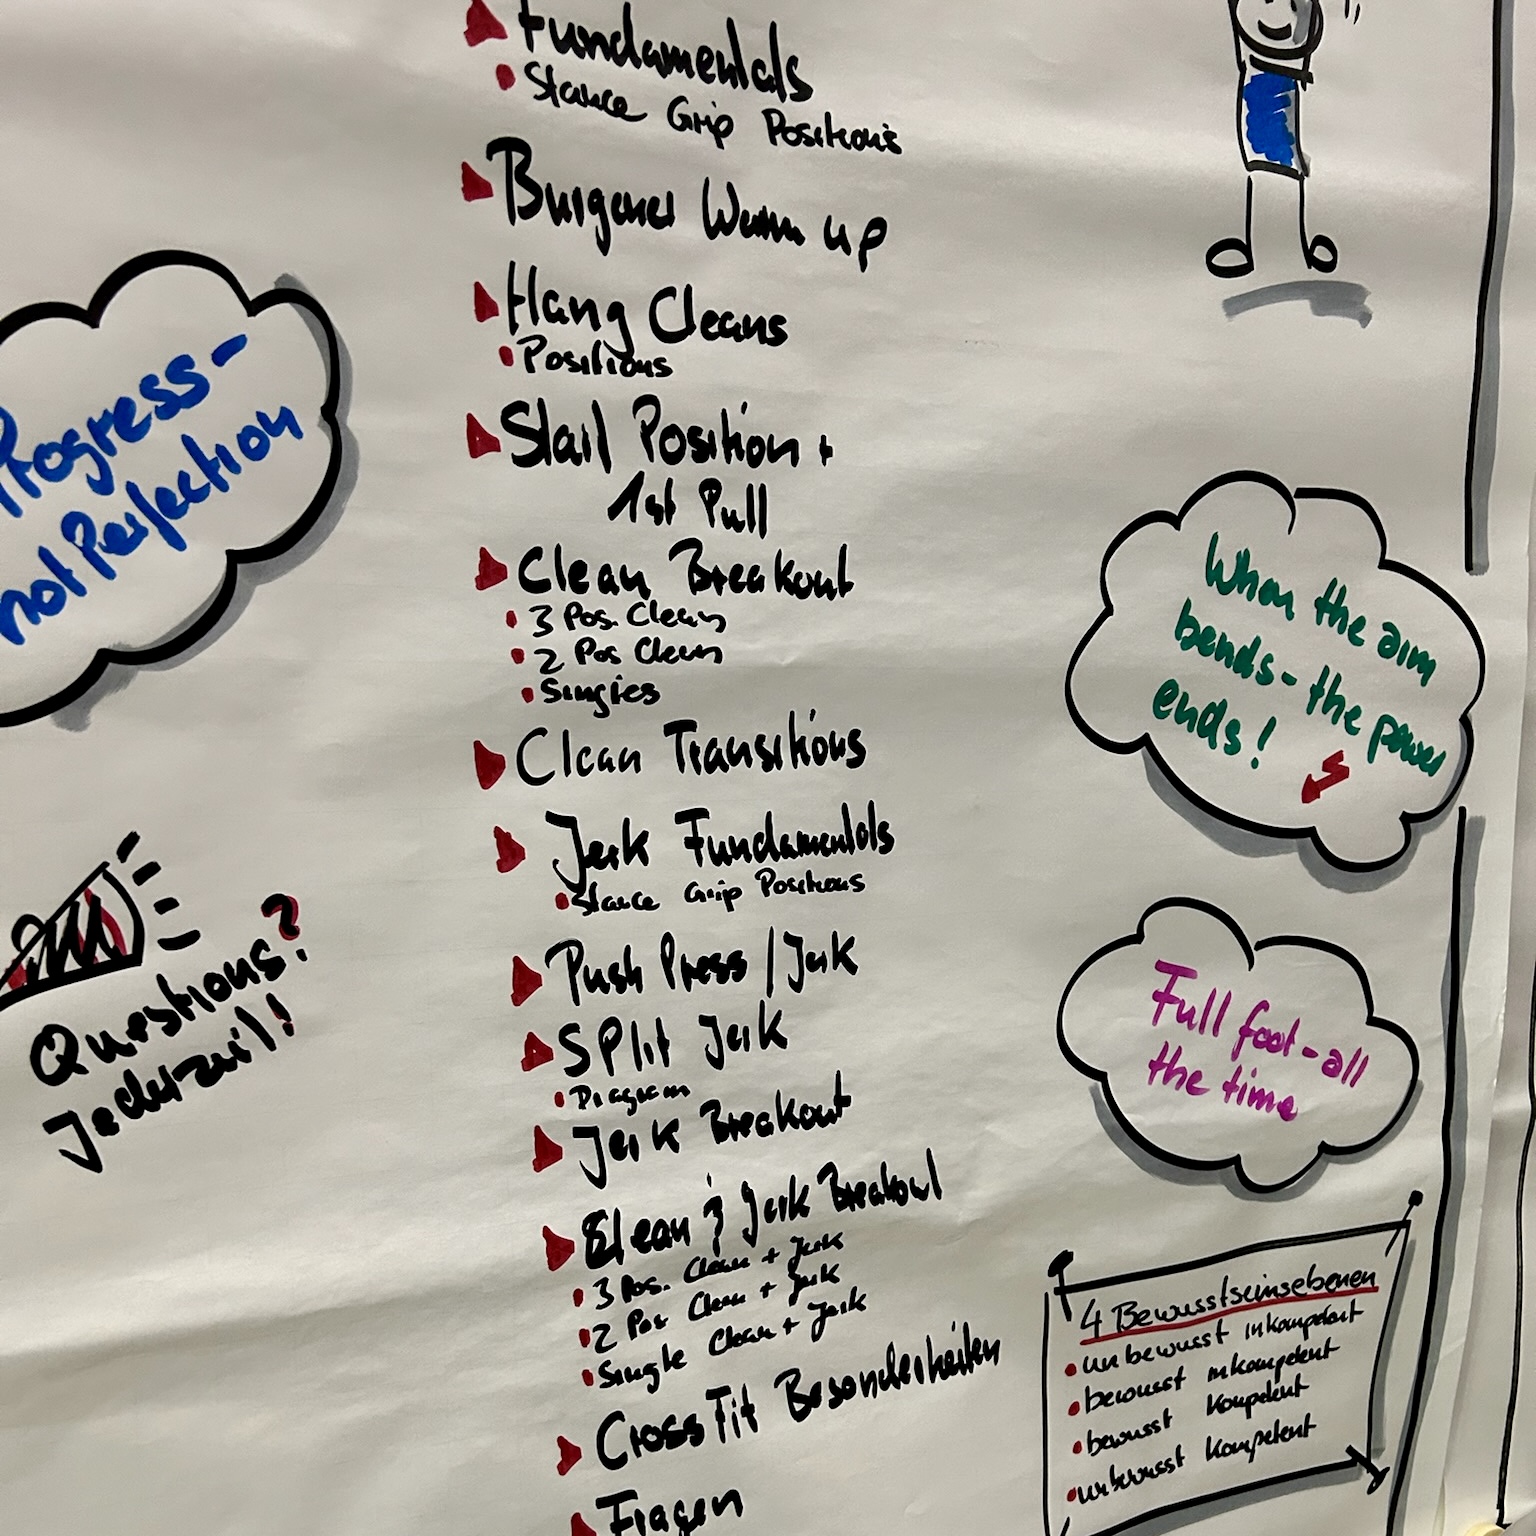 Fundamentals
Stance Grip Positions
Burgener Warm up
Hang Cleans
Positions
Start Position +
1st Pull
Clean Breakout
3 Pos. Clean
2 Pos Clean
Singles
Clean Transitions
Jerk Fundamentals
Stance Grip Positions
Push Press / Jerk
Split Jerk
Diagram
Jerk Breakout
Clean & Jerk Breakout
3 Pos. Clean + Jerk
2 Pos Clean + Jerk
Single Clean + Jerk
CrossFit Besonderheiten
Fragen
Progress-
not Perfection
Questions?
Jederzeit!
When the arm
bends - the power
ends!
Full foot - all
the time
4 Bewusstseinsebenen
unbewusst inkompetent
bewusst inkompetent
bewusst kompetent
unbewusst kompetent